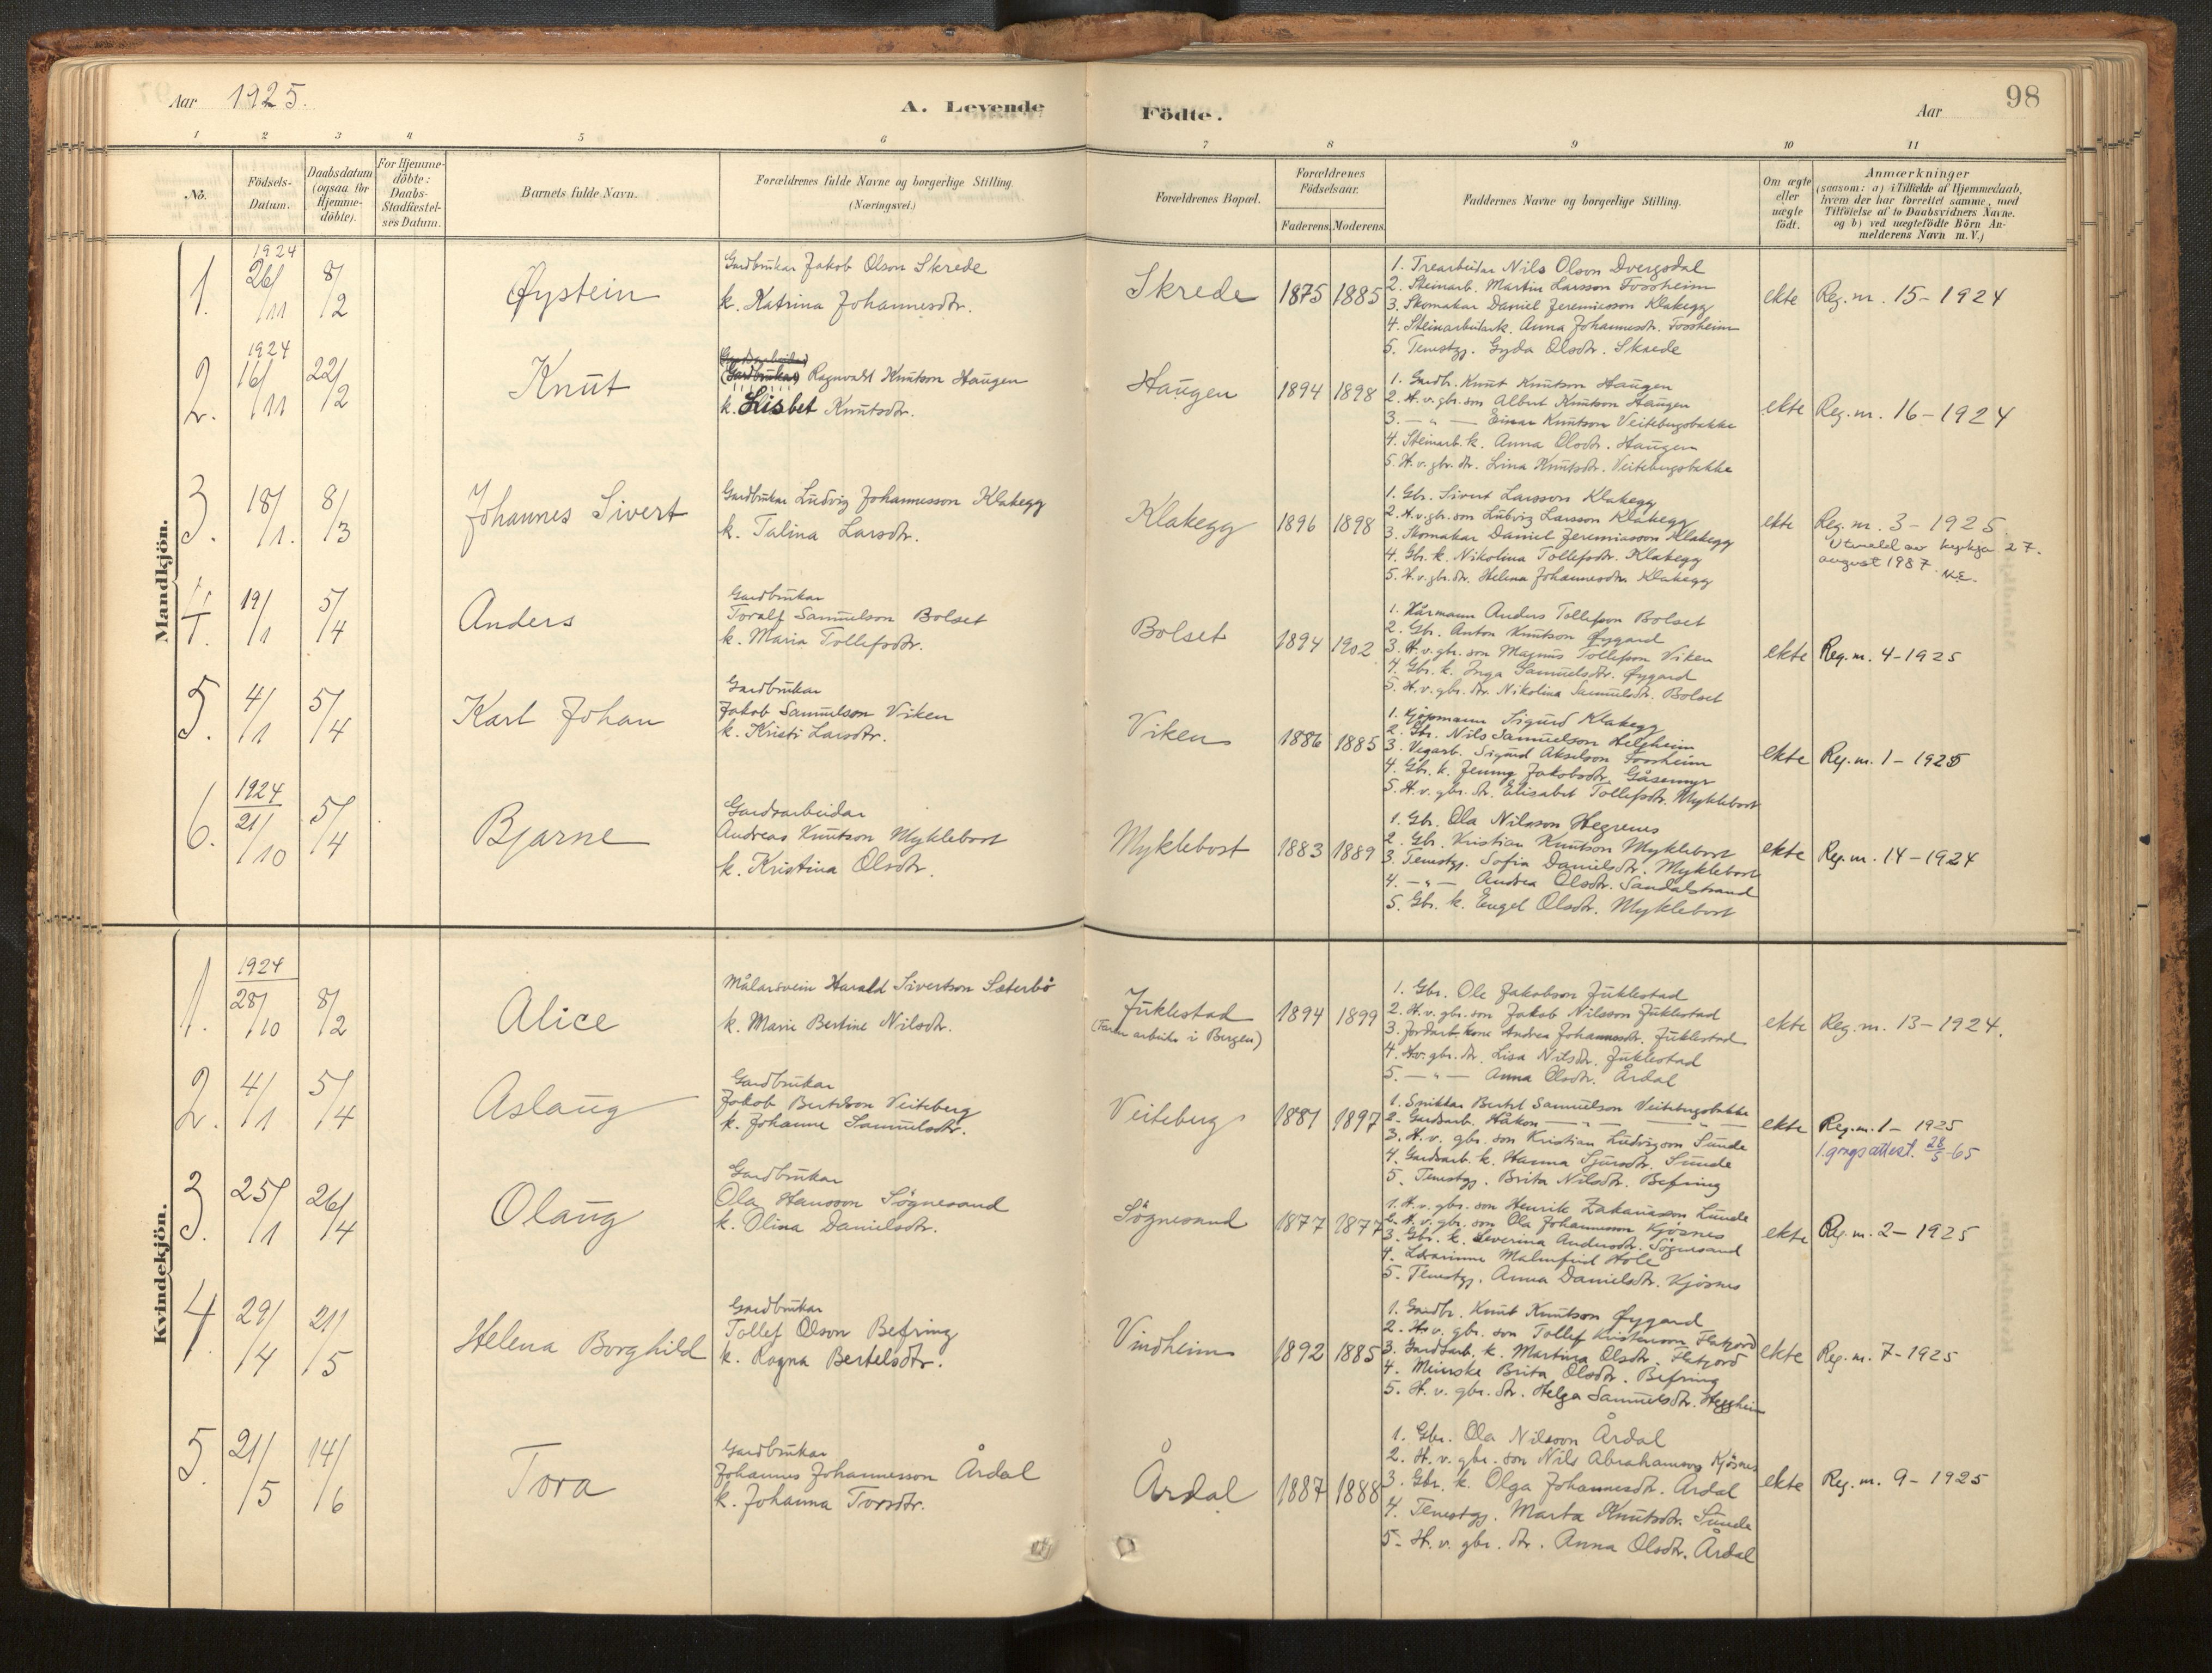 Aar 1925.
A. Levende Födte.
Aar
98
1 2 3 4 5 6 7 8 9 10 11
No.
Födsels-
Datum.
Daabsdatum
(ogsaa for
Hjemme-
döbte).
For Hjemme-
döbte:
Daabs-
Stadfæstel-
ses Datum.
Barnets fulde Navn.
Forældrenes fulde Navne og borgerlige Stilling.
(Næringsvei.)
Forældrenes Bopæl.
Forældrenes
Födselsaar.
Faderens. Moderens.
Faddernes Navne og borgerlige Stilling.
Om ægte
eller
uægte
födt.
Anmærkninger
(saasom: a) i Tilfælde af Hjemmedaab,
hvem der har forrettet samme, med
Tilföielse af to Daabsvidners Navne.
og b) ved uægtefödte Börn An-
melderens Navn m. V.)
Mandkjön.
1. 1924 26/11 8/2 Øystein
Gardbrukar Jakob Olson Skrede
k. Katrina Johannesdtr.
Skrede 1875 1885
1. Trearbeidar Nils Olson Dvergsdal
2. Steinarb. Martin Larsson Fossheim
3. Skomakar Daniel Jeremiasson Klakegg
4. Steinarbeidark. Anna Johannesdtr. Fossheim
5. Tenestgj. Gyda Olsdtr. Skrede
ekte Reg. nr. 15 - 1924
2. 1924 16/11 22/2 Knut
(Gardsarbeidar)
(Gardbrukar) Ragnvald Knutson Haugen
k. Lisbet Knutsdtr.
Haugen 1894 1898
1. Gardbr. Knut Knutson Haugen
2. H. v. gbr. son Albert Knutson Haugen
3. — " — Einar Knutson Veitebergsbakke
4. Steinarb. k. Anna Olsdtr. Haugen
5. H. v. gbr. dtr. Lina Knutsdtr. Veitebergsbakke
ekte Reg. nr. 16 - 1924
3. 18/1. 8/3 Johannes Sivert
Gardbrukar Ludvig Johannesson Klakegg
k. Talina Larsdtr.
Klakegg 1896 1898
1. Gbr. Sivert Larsson Klakegg
2. H. v. gbr. son Ludvig Larsson Klakegg
3. Skomakar Daniel Jeremiasson Klakegg
4. Gbr. k. Nikolina Tollefsdtr. Klakegg
5. H. v. gbr. dtr. Helena Johannesdtr. Klakegg
ekte Reg. nr. 3 - 1925
Utmeld av kyrkja 27.
august 1987. N.E.
4. 19/1 5/4 Anders
Gardbrukar
Toralf Samuelson Bolset
k. Maria Tollefsdtr.
Bolset 1894 1902
1. Kårmann Anders Tollefson Bolset
2. Gbr. Anton Knutson Øygard
3. H. v. gbr. son Magnus Tollefson Viken
4. Gbr. k. Inga Samuelsdtr. Øygard
5. H. v. gbr. dtr. Nikolina Samuelsdtr. Bolset
ekte Reg. nr. 4 - 1925
5. 4/1 5/4 Karl Johan
Gardbrukar
Jakob Samuelson Viken
k. Kristi Larsdtr.
Viken 1886 1885
1. Kjøpmann Sigurd Klakegg
2. Gbr. Nils Samuelson Helgheim
3. Vegarb. Sigurd Akselson Fossheim
4. Gbr. k. Jenny Jakobsdtr. Gåsemyr
5. H. v. gbr. dtr. Elisabet Tollefsdtr. Myklebost
ekte Reg. nr. 1 - 1925
6. 1924 21/10 5/4 Bjarne
Gardsarbeidar
Andreas Knutson Myklebost
k. Kristina Olsdtr.
Myklebost 1883 1889
1. Gbr. Ola Nilsson Hegrenes
2. Gbr. Kristian Knutson Myklebost
3. Tenestgj. Sofia Danielsdtr. Myklebost
4. — " — Andrea Olsdtr. Sandalstrand
5. Gbr. k. Engel Olsdtr. Myklebost
ekte Reg. nr. 14 - 1924
Kvindekjön.
1. 1924 28/10 8/2 Alice
Målarsvein Harald Sivertson Sæterbö
k. Marie Bertine Nilsdtr.
Juklestad
(Faren arbeider i Bergen)
1894 1899
1. Gbr. Ole Jakobson Juklestad
2. H. v. gbr. son Jakob Nilsson Juklestad
3. Jordarb. kone Andrea Johannesdtr. Juklestad
4. H.v. gbr. dtr. Lisa Nilsdtr. Juklestad
5. — " — Anna Olsdtr. Årdal
ekte Reg. nr. 13 - 1924.
2. 4/1 5/4 Aslaug
Gardbrukar
Jakob Bertelson Veiteberg
k. Johanne Samuelsdtr.
Veiteberg 1881 1897
1. Snikkar Bertel Samuelson Veitebergsbakke
2. Gardsarb. Håkon — " — — " —
3. H. v. gbr. son Kristian Ludvigson Sunde
4. Gardsarb. k. Hanna Sjursdtr. Sunde
5. Tenestgj. Brita Nilsdtr. Befring
ekte Reg. nr. 1 - 1925
1. gongs attest. 28/5-65
3. 25/1 26/4 Olaug
Gardbrukar
Ola Hansson Sögnesand
k. Olina Danielsdtr.
Sögnesand 1877 1877
1. H. v. gbr. son Henrik Zakariasson Lunde
2. H. v. gbr. son Ola Johannesson Kjösnes
3. Gbr. k. Severina Andersdtr. Sögnesand
4. Lærarinne Malmfrid Hole
5. Tenestgj. Anna Danielsdtr. Kjösnes
ekte Reg. nr. 2 - 1925
4. 29/4 21/5 Helena Borghild
Gardbrukar
Tollef Olson Befring
k. Ragna Bertelsdtr.
Vindheim 1892 1885
1. Gardbr. Knut Knutson Øygard
2. H. v. gbr. son Tollef Kristenson Flatjord
3. Gardsarb. k. Martina Olsdtr. Flatjord
4. Meierske Brita Olsdtr. Befring
5. H. v. gbr. dtr. Helga Samuelsdtr. Heggheim
ekte Reg. nr. 7 - 1925
5. 21/5 14/6 Tora
Gardbrukar
Johannes Johannesson Årdal
k. Johanna Torsdtr.
Årdal 1887 1888
1. Gbr. Ola Nilsson Årdal
2. H. v. gbr. son Nils Abrahamson Kjösnes
3. Gbr. k. Olga Johannesdtr. Årdal
4. Tenestgj. Marta Knutsdtr. Sunde
5. H. v. gbr. dtr. Anna Olsdtr. Årdal
ekte Reg. nr. 9 - 1925